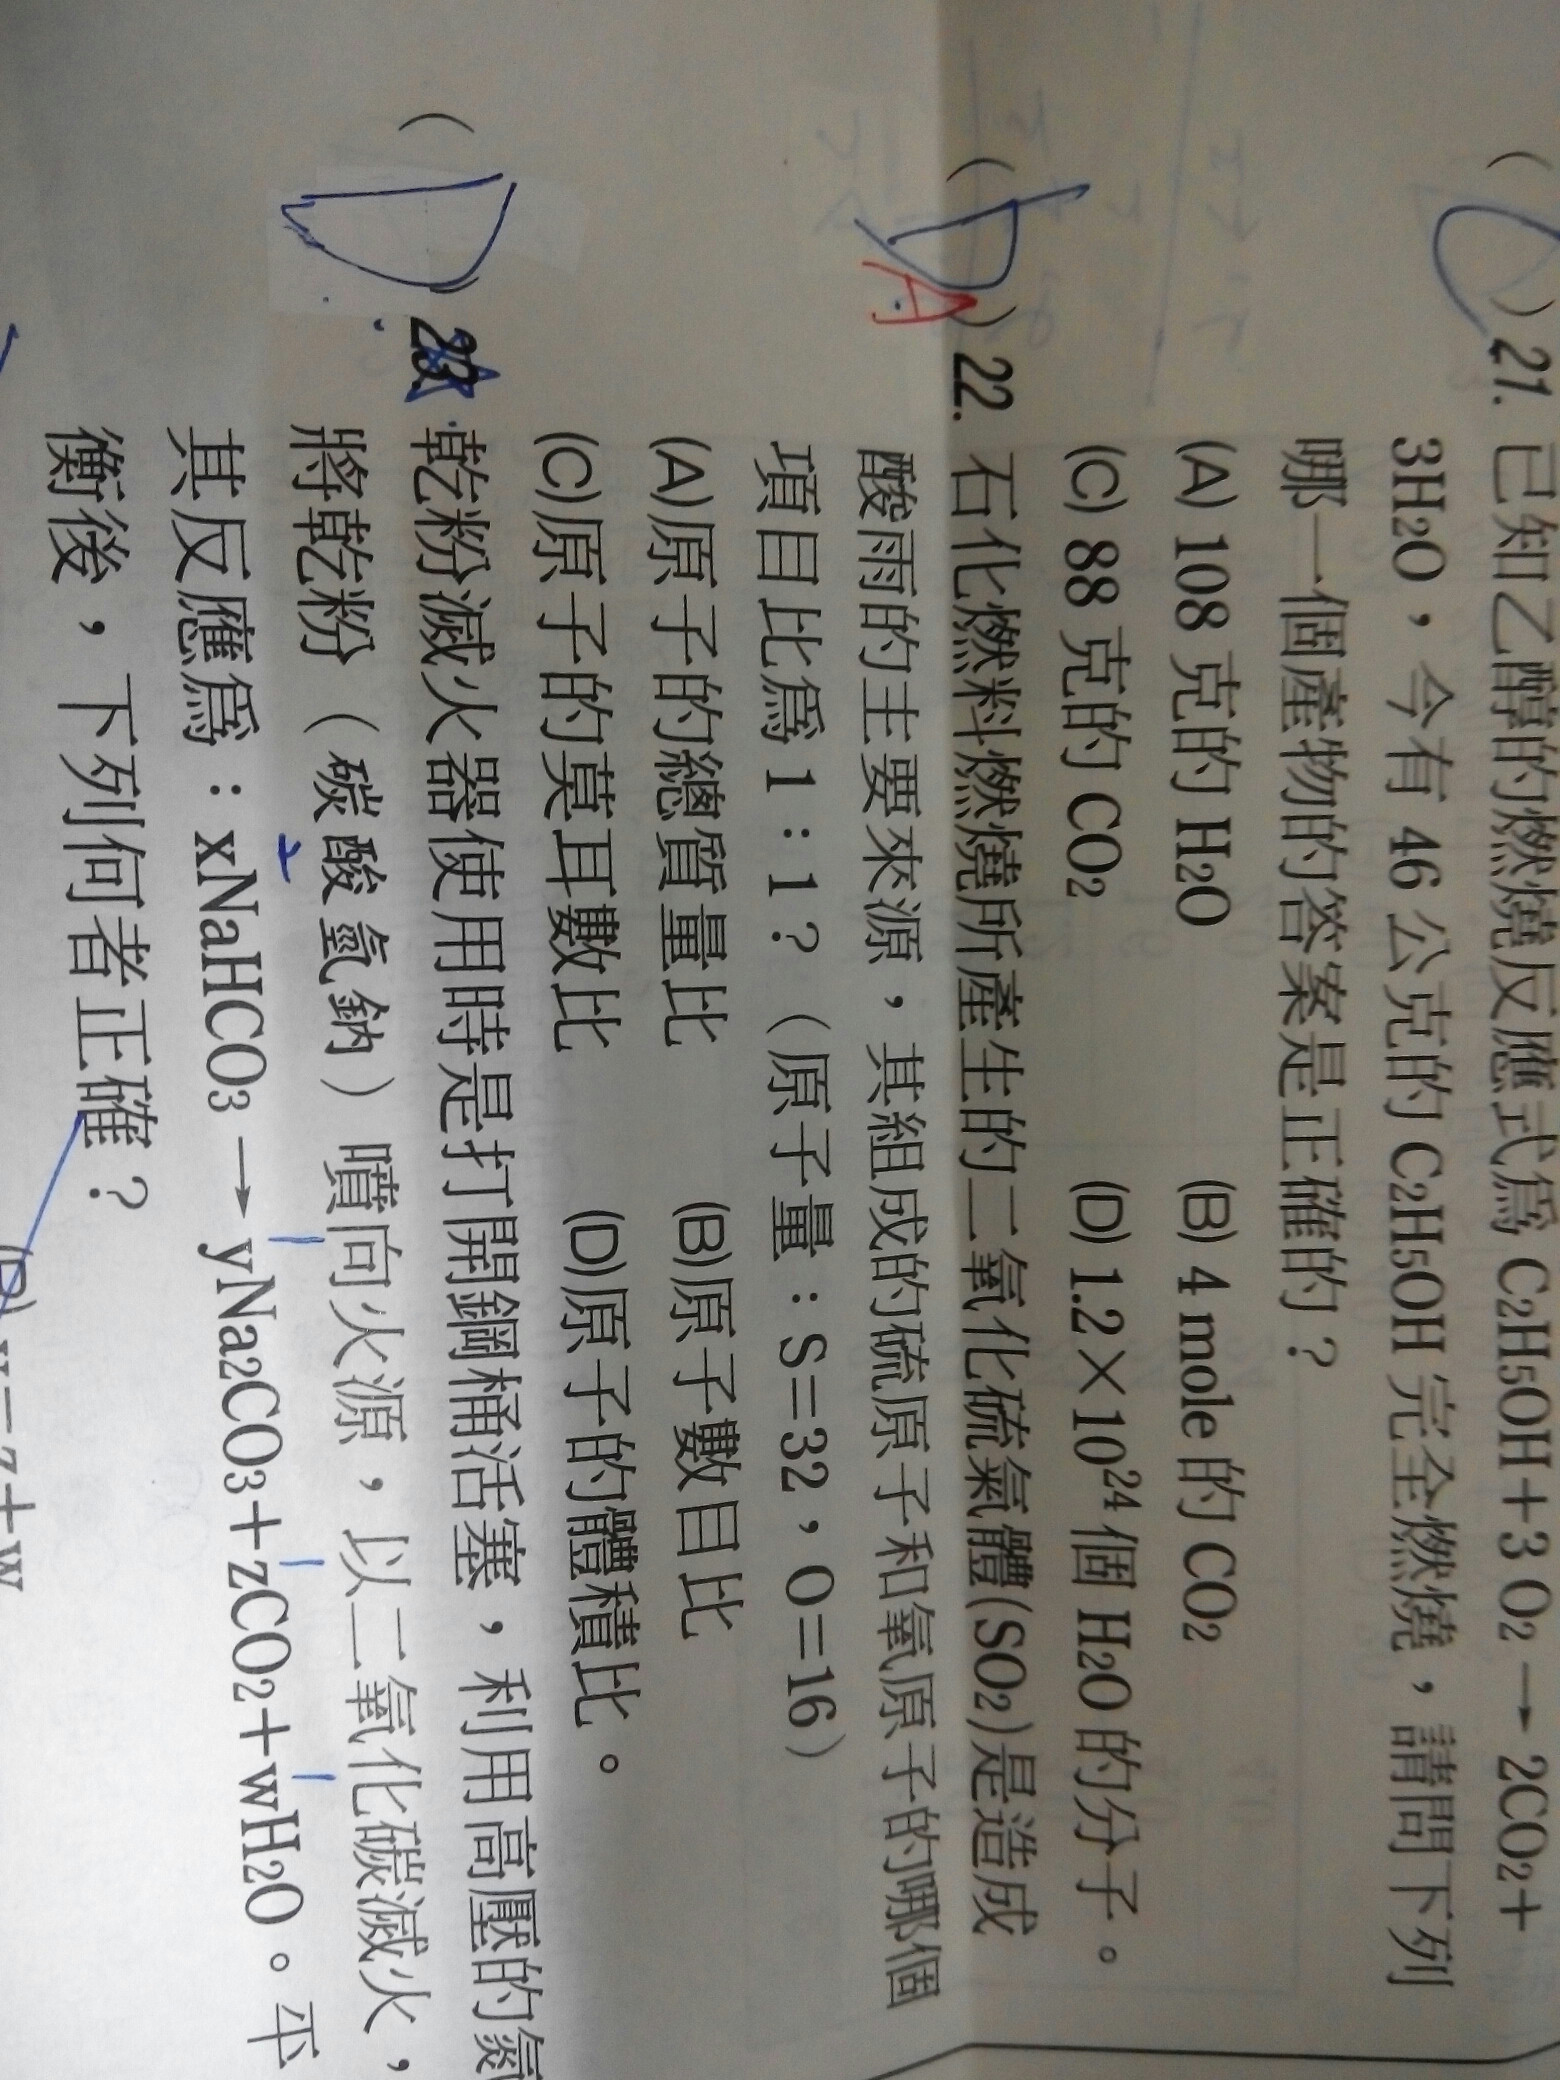 (C)21. 已知乙醇的燃燒反應式為 C2H5OH+3 O2 → 2CO2+
3H2O，今有 46 公克的 C2H5OH 完全燃燒，請問下列
哪一個產物的答案是正確的？
(A) 108 克的 H2O (B) 4 mole 的 CO2
(C) 88 克的 CO2 (D) 1.2×10²⁴個 H2O 的分子。
(D A)22. 石化燃料燃燒所產生的二氧化硫氣體(SO2)是造成
酸雨的主要來源，其組成的硫原子和氧原子的哪個
項目比為 1：1？（原子量：S=32，O=16）
(A)原子的總質量比 (B)原子數目比
(C)原子的莫耳數比 (D)原子的體積比。
(D)23. 乾粉滅火器使用時是打開鋼桶活塞，利用高壓的氮
將乾粉（碳酸氫鈉）噴向火源，以二氧化碳滅火，
2
其反應為：xNaHCO3 → yNa2CO3+zCO2+wH2O。平
衡後，下列何者正確？